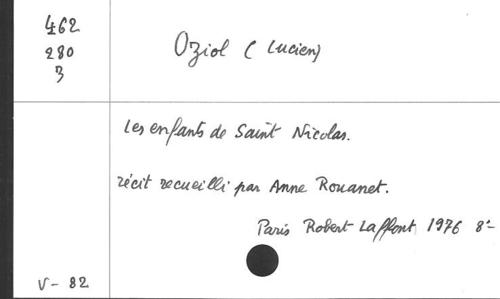 462
280
3
Oziol (Lucien)
Les enfants de Saint Nicolas.
récit recueilli par Anne Rouanet.
Paris Robert Laffont 1976 8°
V - 82